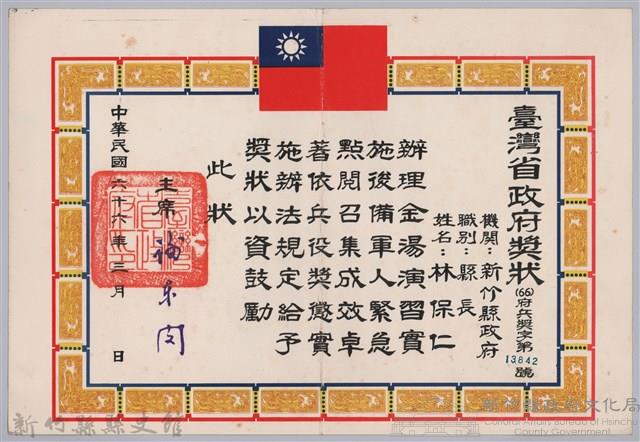 臺灣省政府獎狀
(66)府兵獎字第
13842
號
機關：新竹縣政府
職別：縣長
姓名：林保仁
辦理金湯演習實
施後備軍人緊急
點閱召集成效卓
著依兵役獎懲實
施辦法規定給予
獎狀以資鼓勵
此狀
主席
中華民國六十六年三月 日
新竹縣縣史館
新竹縣政府文化局
Cultural Affairs Bureau of Hsinchu
County Government